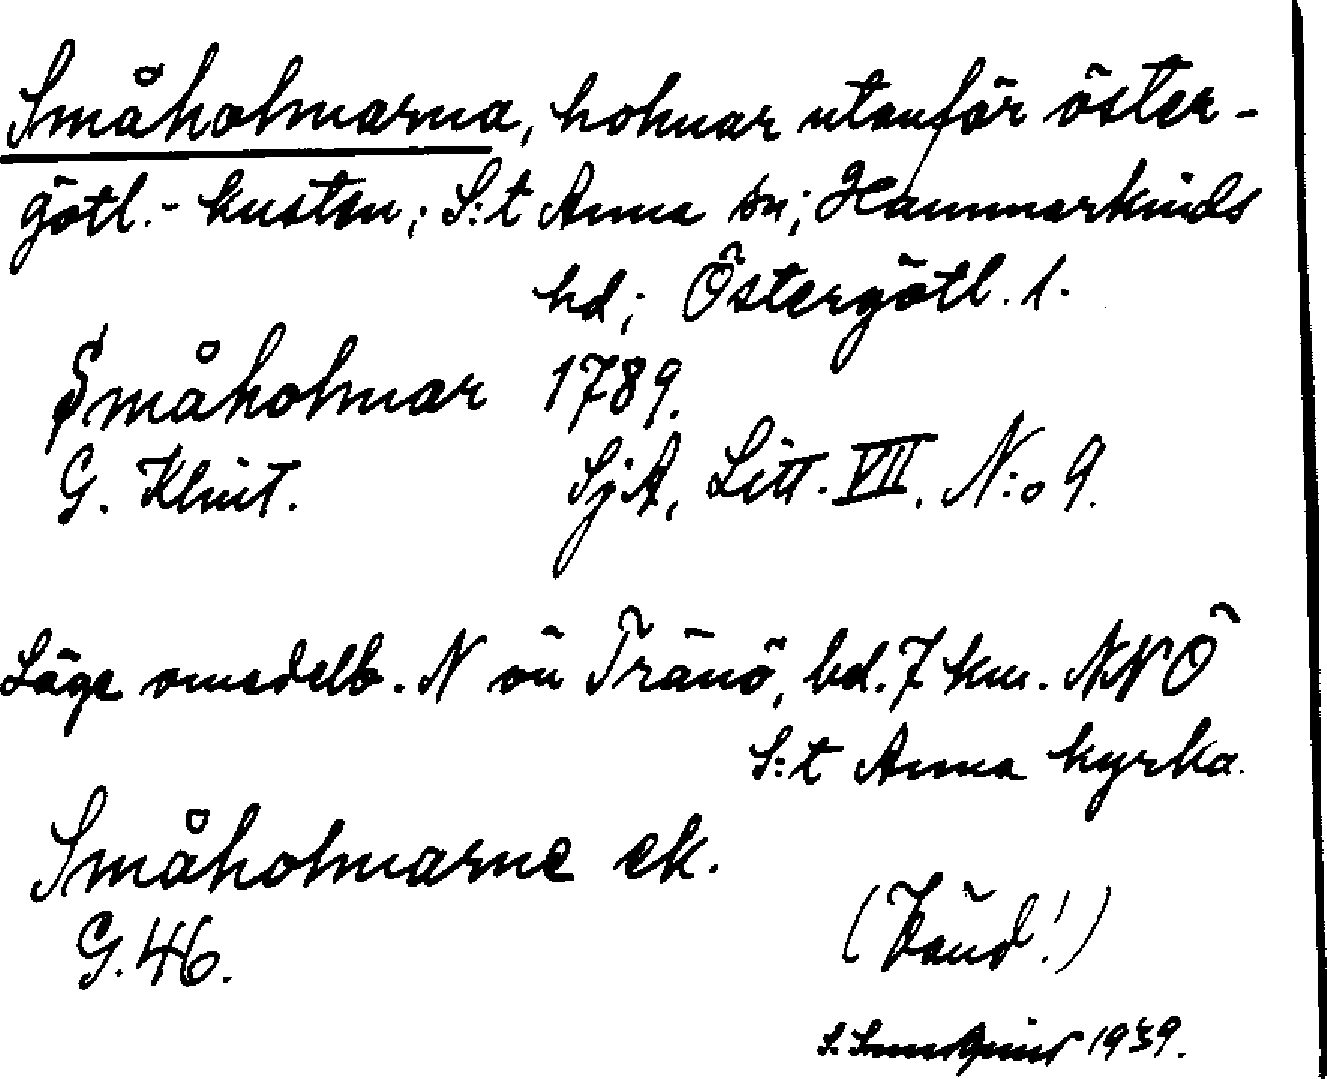 Småholmarna, holmar utanför öster-
götl.-kusten; S:t Anna sn; Hammarkinds
hd; Östergötl. l.
Småholmar 1789.
G. Klint. SjA, Litt. VII. N:o 9.
Läge omedelb. N om Tränö, bd. 7 km. NNÖ
S:t Anna kyrka.
Småholmarne ek.
G. 46.
(Vänd!)
1939.